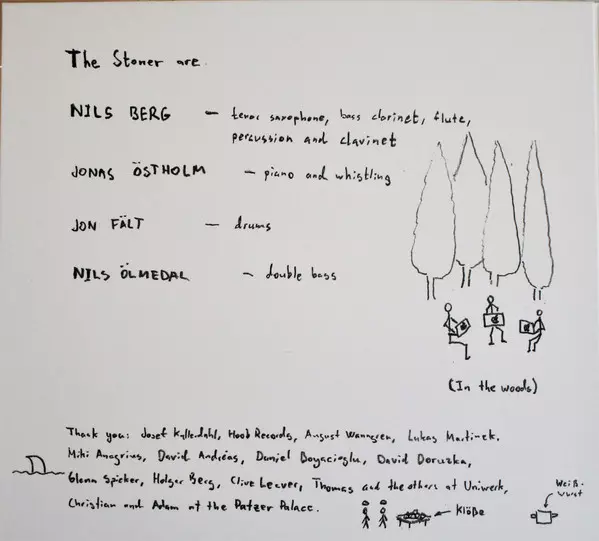 The Stoner are
NILS BERG – tenor saxophone, bass clarinet, flute,
percussion and clavinet
JONAS ÖSTHOLM – piano and whistling
JON FÄLT – drums
NILS ÖLMEDAL – double bass
(In the woods)
Thank you: Josef Kallerdahl, Hoob Records, August Wanngren, Lukas Martinek.
Miki Anagrius, David Andréas, Daniel Boyacioglu, David Doruzka,
Glenn Spicker, Holger Berg, Clive Leaver, Thomas and the others at Uniwerk,
Christian and Adam at the Patzer Palace.
Klöße
Weiß-
wurst